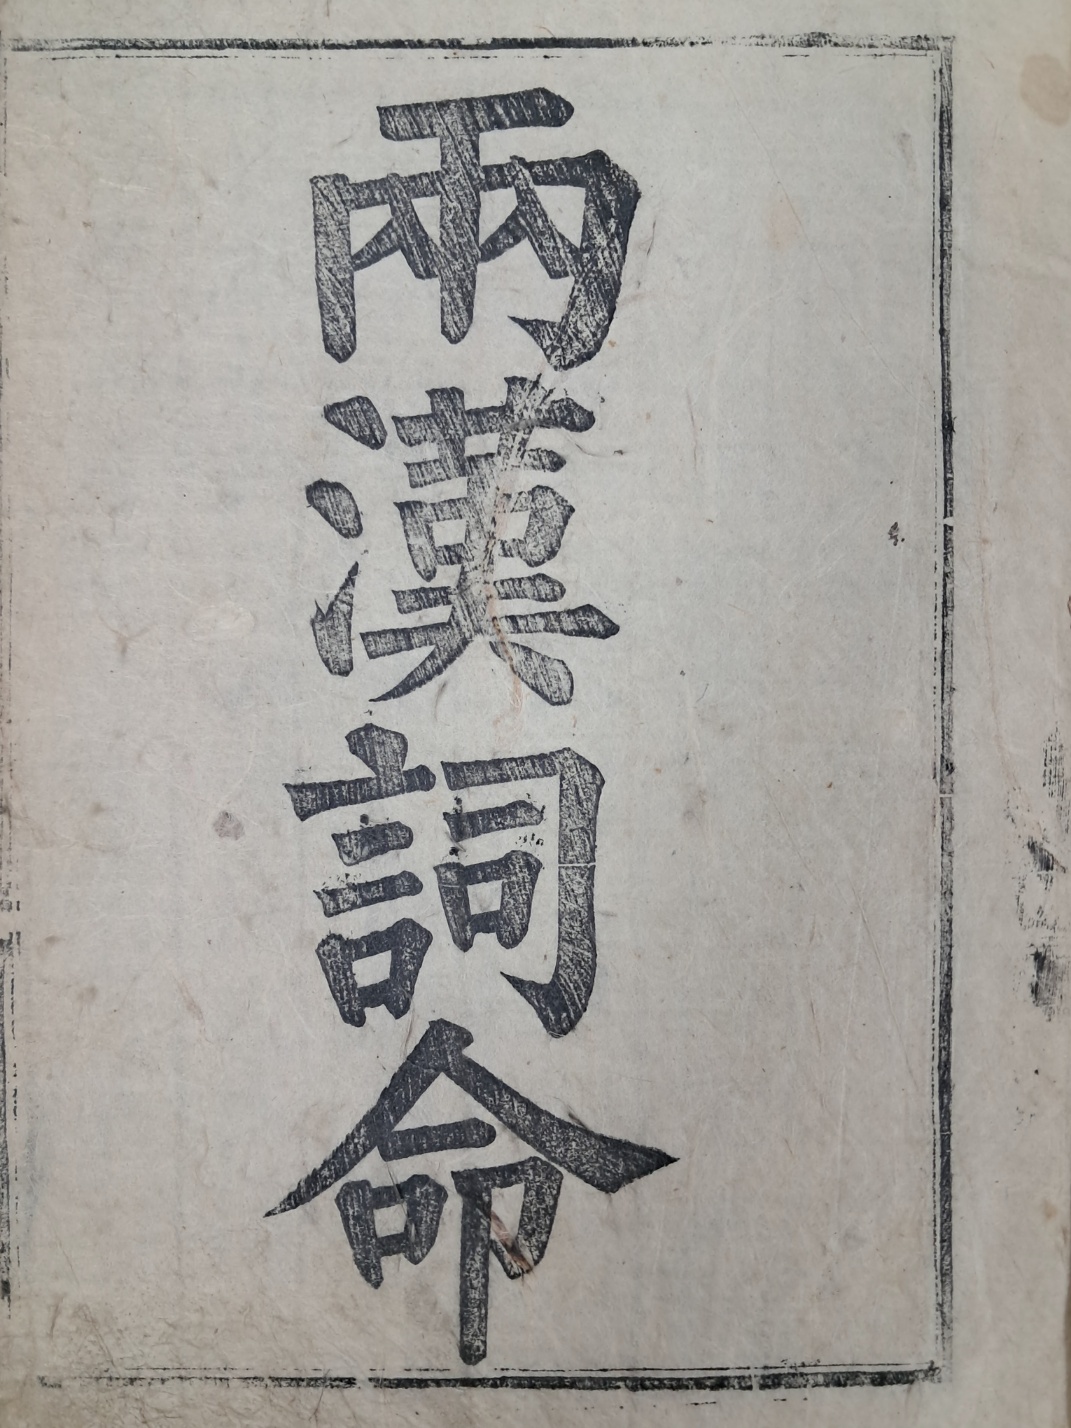 兩漢詞命